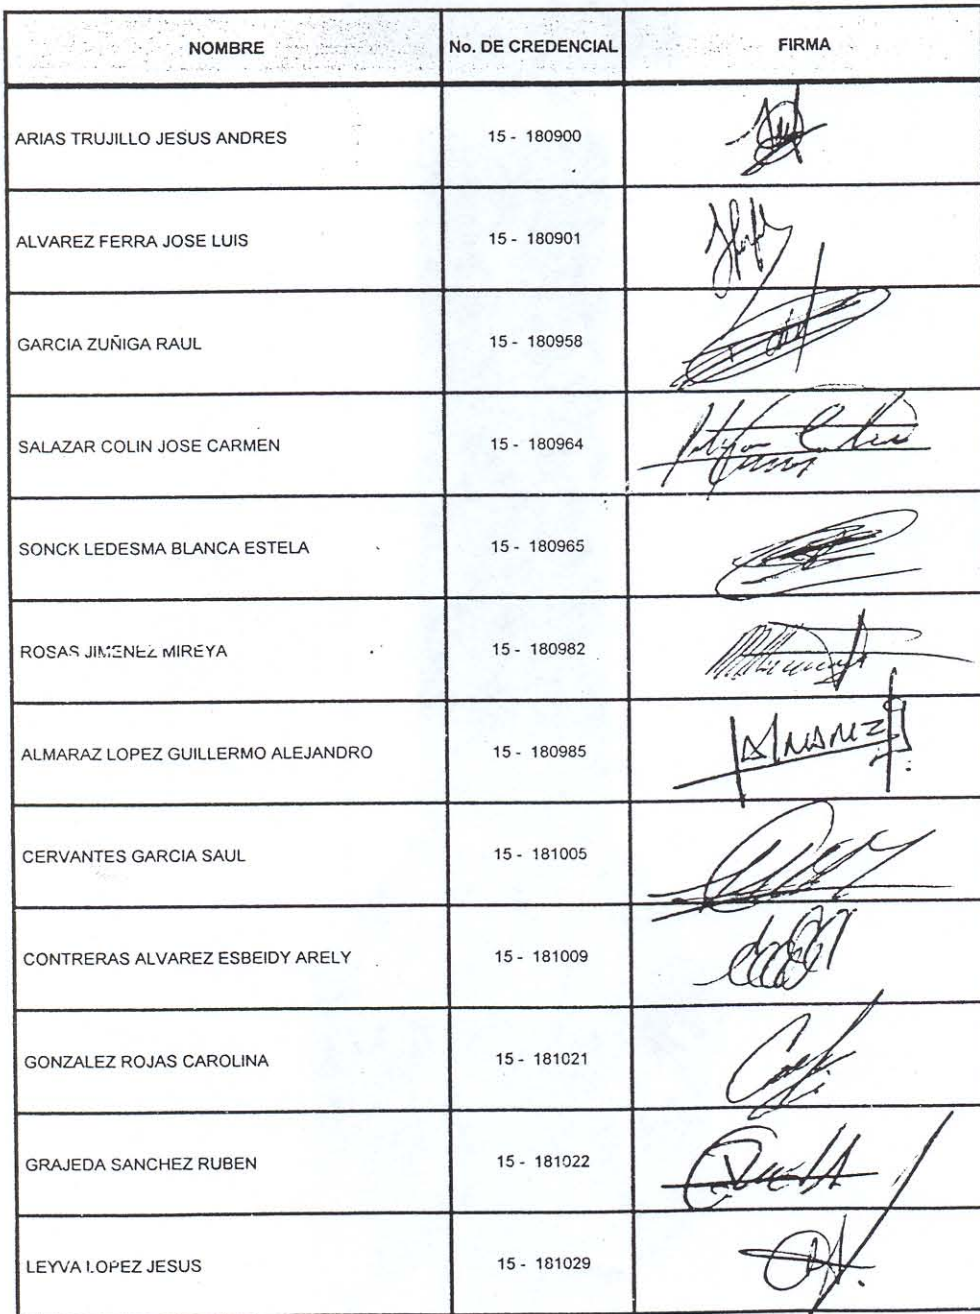 NOMBRE No. DE CREDENCIAL FIRMA
ARIAS TRUJILLO JESUS ANDRES 15 - 180900
ALVAREZ FERRA JOSE LUIS 15 - 180901
GARCIA ZUÑIGA RAUL 15 - 180958
SALAZAR COLIN JOSE CARMEN 15 - 180964
SONCK LEDESMA BLANCA ESTELA 15 - 180965
ROSAS JIMENEZ MIREYA 15 - 180982
ALMARAZ LOPEZ GUILLERMO ALEJANDRO 15 - 180985
CERVANTES GARCIA SAUL 15 - 181005
CONTRERAS ALVAREZ ESBEIDY ARELY 15 - 181009
GONZALEZ ROJAS CAROLINA 15 - 181021
GRAJEDA SANCHEZ RUBEN 15 - 181022
LEYVA LOPEZ JESUS 15 - 181029